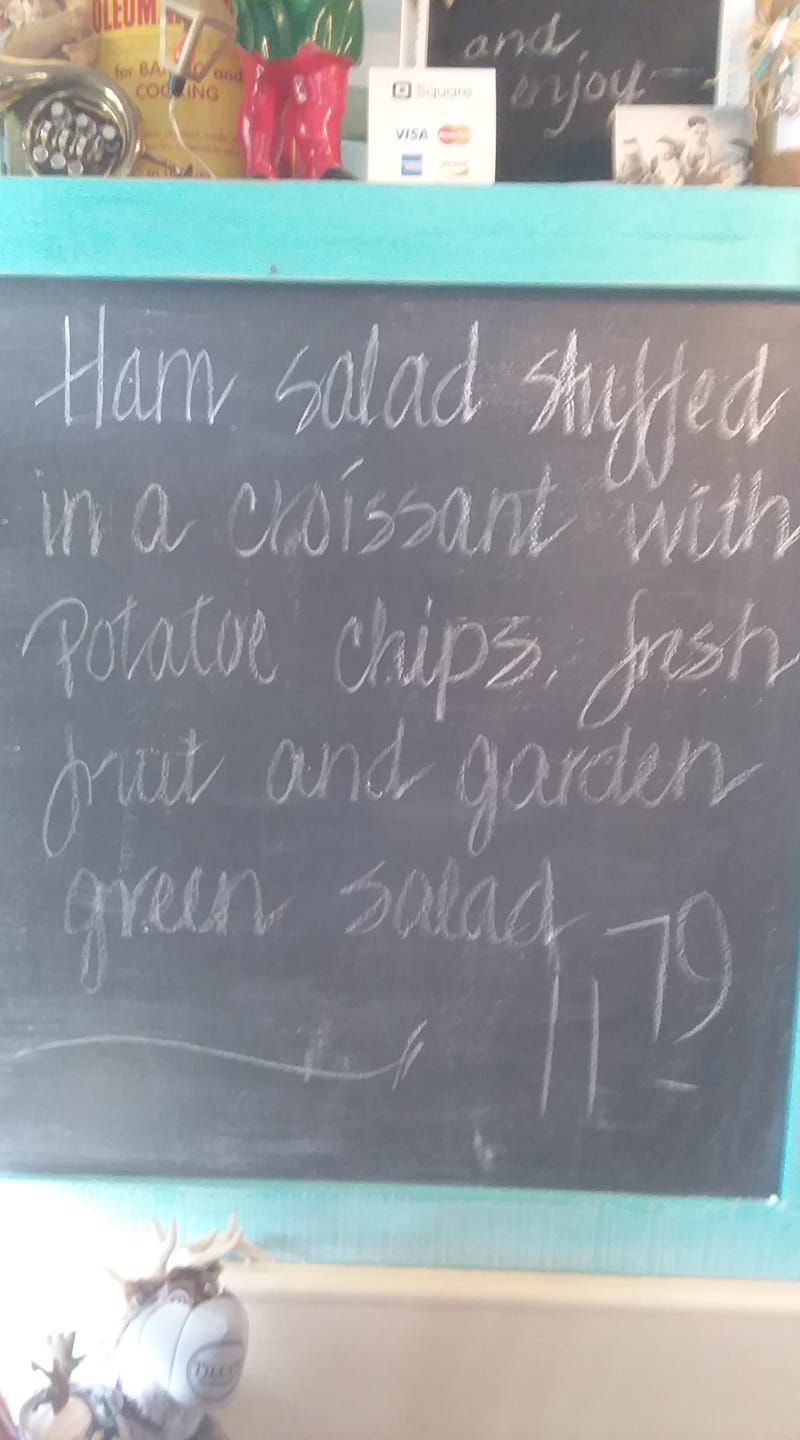 OLEUM
for BAKING and
COOKING
Square
VISA
and
enjoy
Ham salad stuffed
in a croissant with
Potatoe chips, fresh
fruit and garden
green salad
11 79